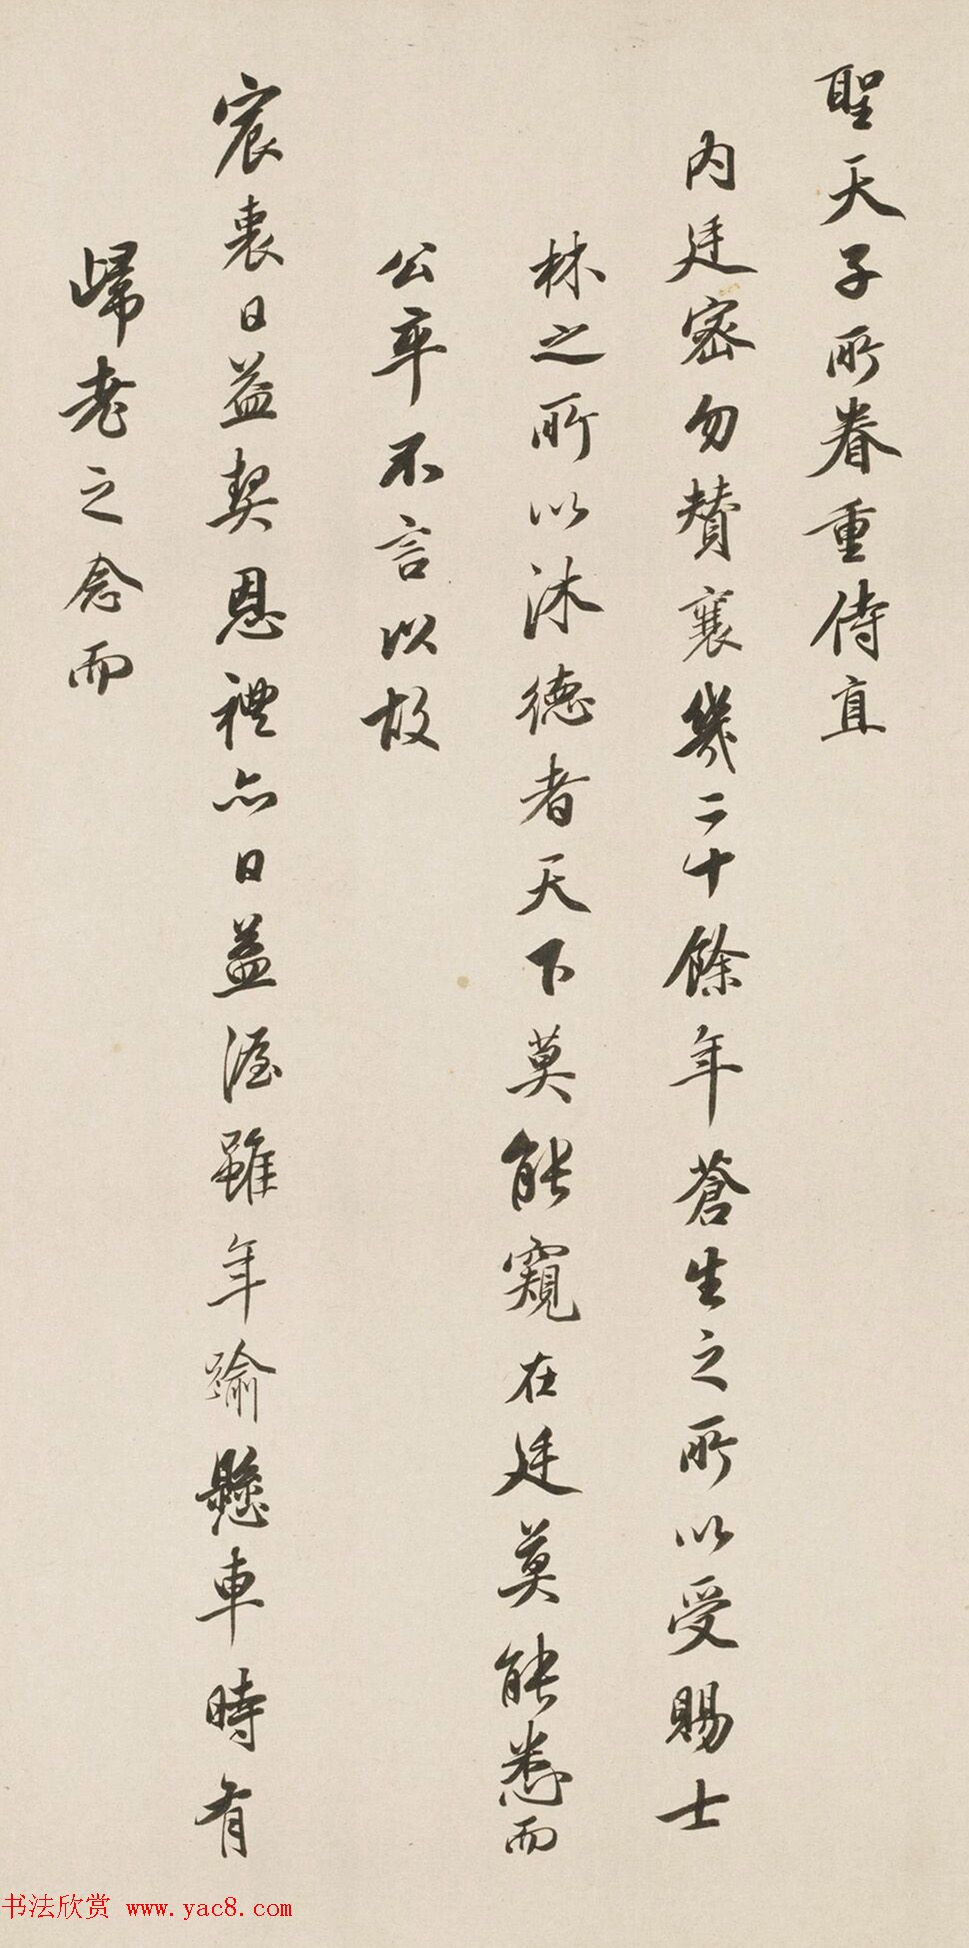 聖天子所眷重侍直
内廷密勿贊襄幾二十餘年蒼生之所以受賜士
林之所以沐德者天下莫能窺在廷莫能悉而
公卒不言以故
宸衷日益契恩禮亦日益渥雖年踰懸車時有
歸老之念而
书法欣赏 www.yac8.com